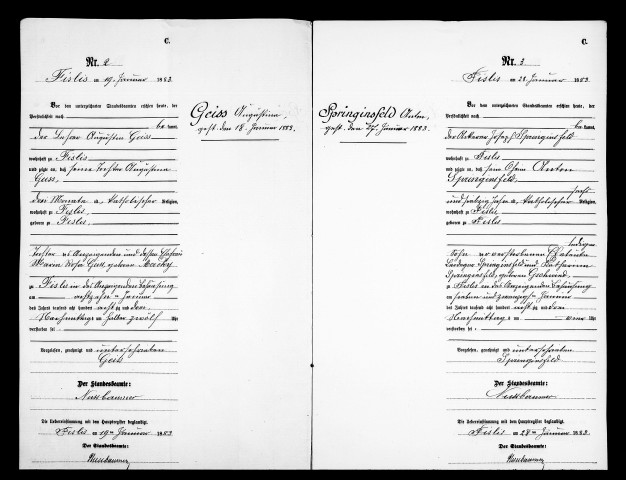 C.
Nr. 2
Fislis am 19. Januar 1883.
Vor dem unterzeichneten Standesbeamten erschien heute, der
Persönlichkeit nach
be kannt,
der Acker Augustin Geiss
wohnhaft zu Fislis
und zeigte an, daß seine Tochter Augustina
Geiss,
drei Monate a, katholischer Religion,
wohnhaft zu Fislis,
geboren zu Fislis,
Tochter des Anzeigenden und dessen Ehefrau
Maria Rosa Geiss, geborene
zu Fislis in des Anzeigenden Behausung
am achtzehn ten Januar
des Jahres tausend acht hundert achtzig und drei
Nachmittags um halber zwölf Uhr
verstorben sei.
Vorgelesen, genehmigt und unterschrieben
Geiss
Der Standesbeamte:
Nussbaumer
Die Uebereinstimmung mit dem Hauptregister beglaubigt.
Fislis am 19ten Januar 1883
Der Standesbeamte:
Nussbaumer
Geiss Augustina,
gest. den 18. Januar 1883.
Springinsfeld Anton,
gest. den 27. Januar 1883.
C.
Nr. 3
Fislis am 28. Januar 1883.
Vor dem unterzeichneten Standesbeamten erschien heute, der
Persönlichkeit nach
be kannt,
der Ackerer Josef Springinsfeld
wohnhaft zu Fislis
und zeigte an, daß sein Ohm Anton
Springinsfeld,
sechs
und siebzig Jahre a, katholischer Religion,
wohnhaft zu Fislis
geboren zu Fislis
lediger
Sohn der verstorbenen Eheleute
Springinsfeld und Katharina
Springinsfeld, geborene
zu Fislis in des Anzeigenden Behausung
am sieben und zwanzigsten Januar
des Jahres tausend acht hundert achtzig und drei
Nachmittags um Uhr
verstorben sei.
Vorgelesen, genehmigt und unterschrieben
Springinsfeld
Der Standesbeamte:
Nussbaumer
Die Uebereinstimmung mit dem Hauptregister beglaubigt.
Fislis am 28ten Januar 1883
Der Standesbeamte:
Nussbaumer